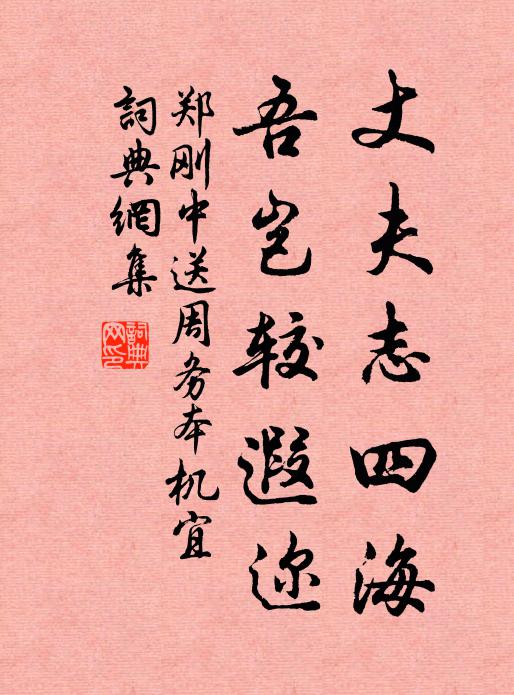 丈夫志四海
吾岂较遐迩
郑刚中送周务本机宜
詞典網集
詞典网印